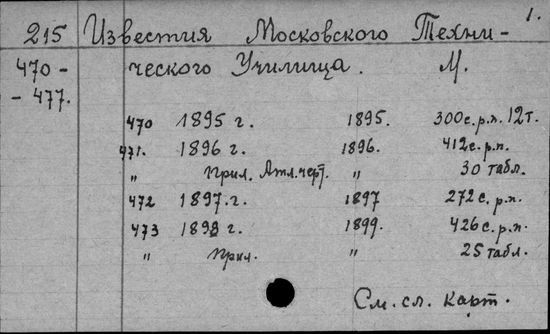 1.
215 Известия Московского Техни-
470- ческого Училища. М.
-477.
470 1895 г. 1895. 300 с. р.п. 12т.
471. 1896 г. 1896. 412 с. р.п.
" Прил. Атл. черт. " 30 табл.
472 1897. г. 1897 272 с. р.п.
473 1898 г. 1899. 426 с. р.п.
" Прил. " 25 табл.
См. сл. карт.